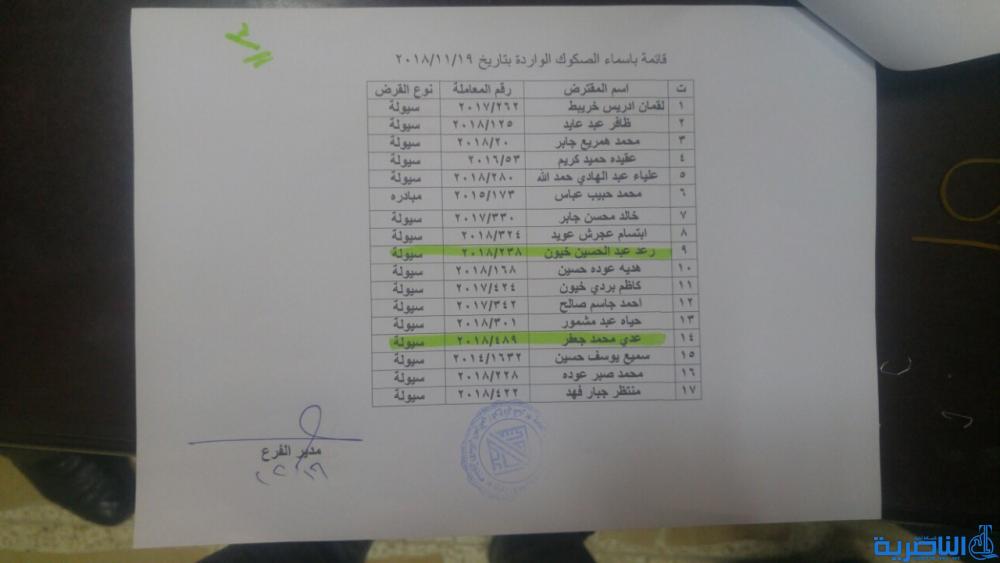 قائمة باسماء الصكوك الواردة بتاريخ ٢٠١٨/١١/١٩
ت اسم المقترض رقم المعاملة نوع القرض
١ لقمان ادريس خريبط ٢٠١٧/٢٦٢ سيولة
٢ ظافر عبد عايد ٢٠١٨/١٢٥ سيولة
٣ محمد همريع جابر ٢٠١٨/٢٠ سيولة
٤ عقيده حميد كريم ٢٠١٦/٥٣ سيولة
٥ علياء عبد الهادي حمد الله ٢٠١٨/٢٨٠ سيولة
٦ محمد حبيب عباس ٢٠١٥/١٧٣ مبادره
٧ خالد محسن جابر ٢٠١٧/٣٣٠ سيولة
٨ ابتسام عجرش عويد ٢٠١٨/٣٢٤ سيولة
٩ رعد عبد الحسين خيون ٢٠١٨/٢٣٨ سيولة
١٠ هديه عوده حسين ٢٠١٨/١٦٨ سيولة
١١ كاظم بردي خيون ٢٠١٧/٤٢٤ سيولة
١٢ احمد جاسم صالح ٢٠١٧/٣٤٢ سيولة
١٣ حياه عبد مشمور ٢٠١٨/٣٠١ سيولة
١٤ عدي محمد جعفر ٢٠١٨/٤٨٩ سيولة
١٥ سميع يوسف حسين ٢٠١٤/١٦٣٢ سيولة
١٦ محمد صبر عوده ٢٠١٨/٢٢٨ سيولة
١٧ منتظر جبار فهد ٢٠١٨/٤٢٢ سيولة
مدير الفرع
الناصرية